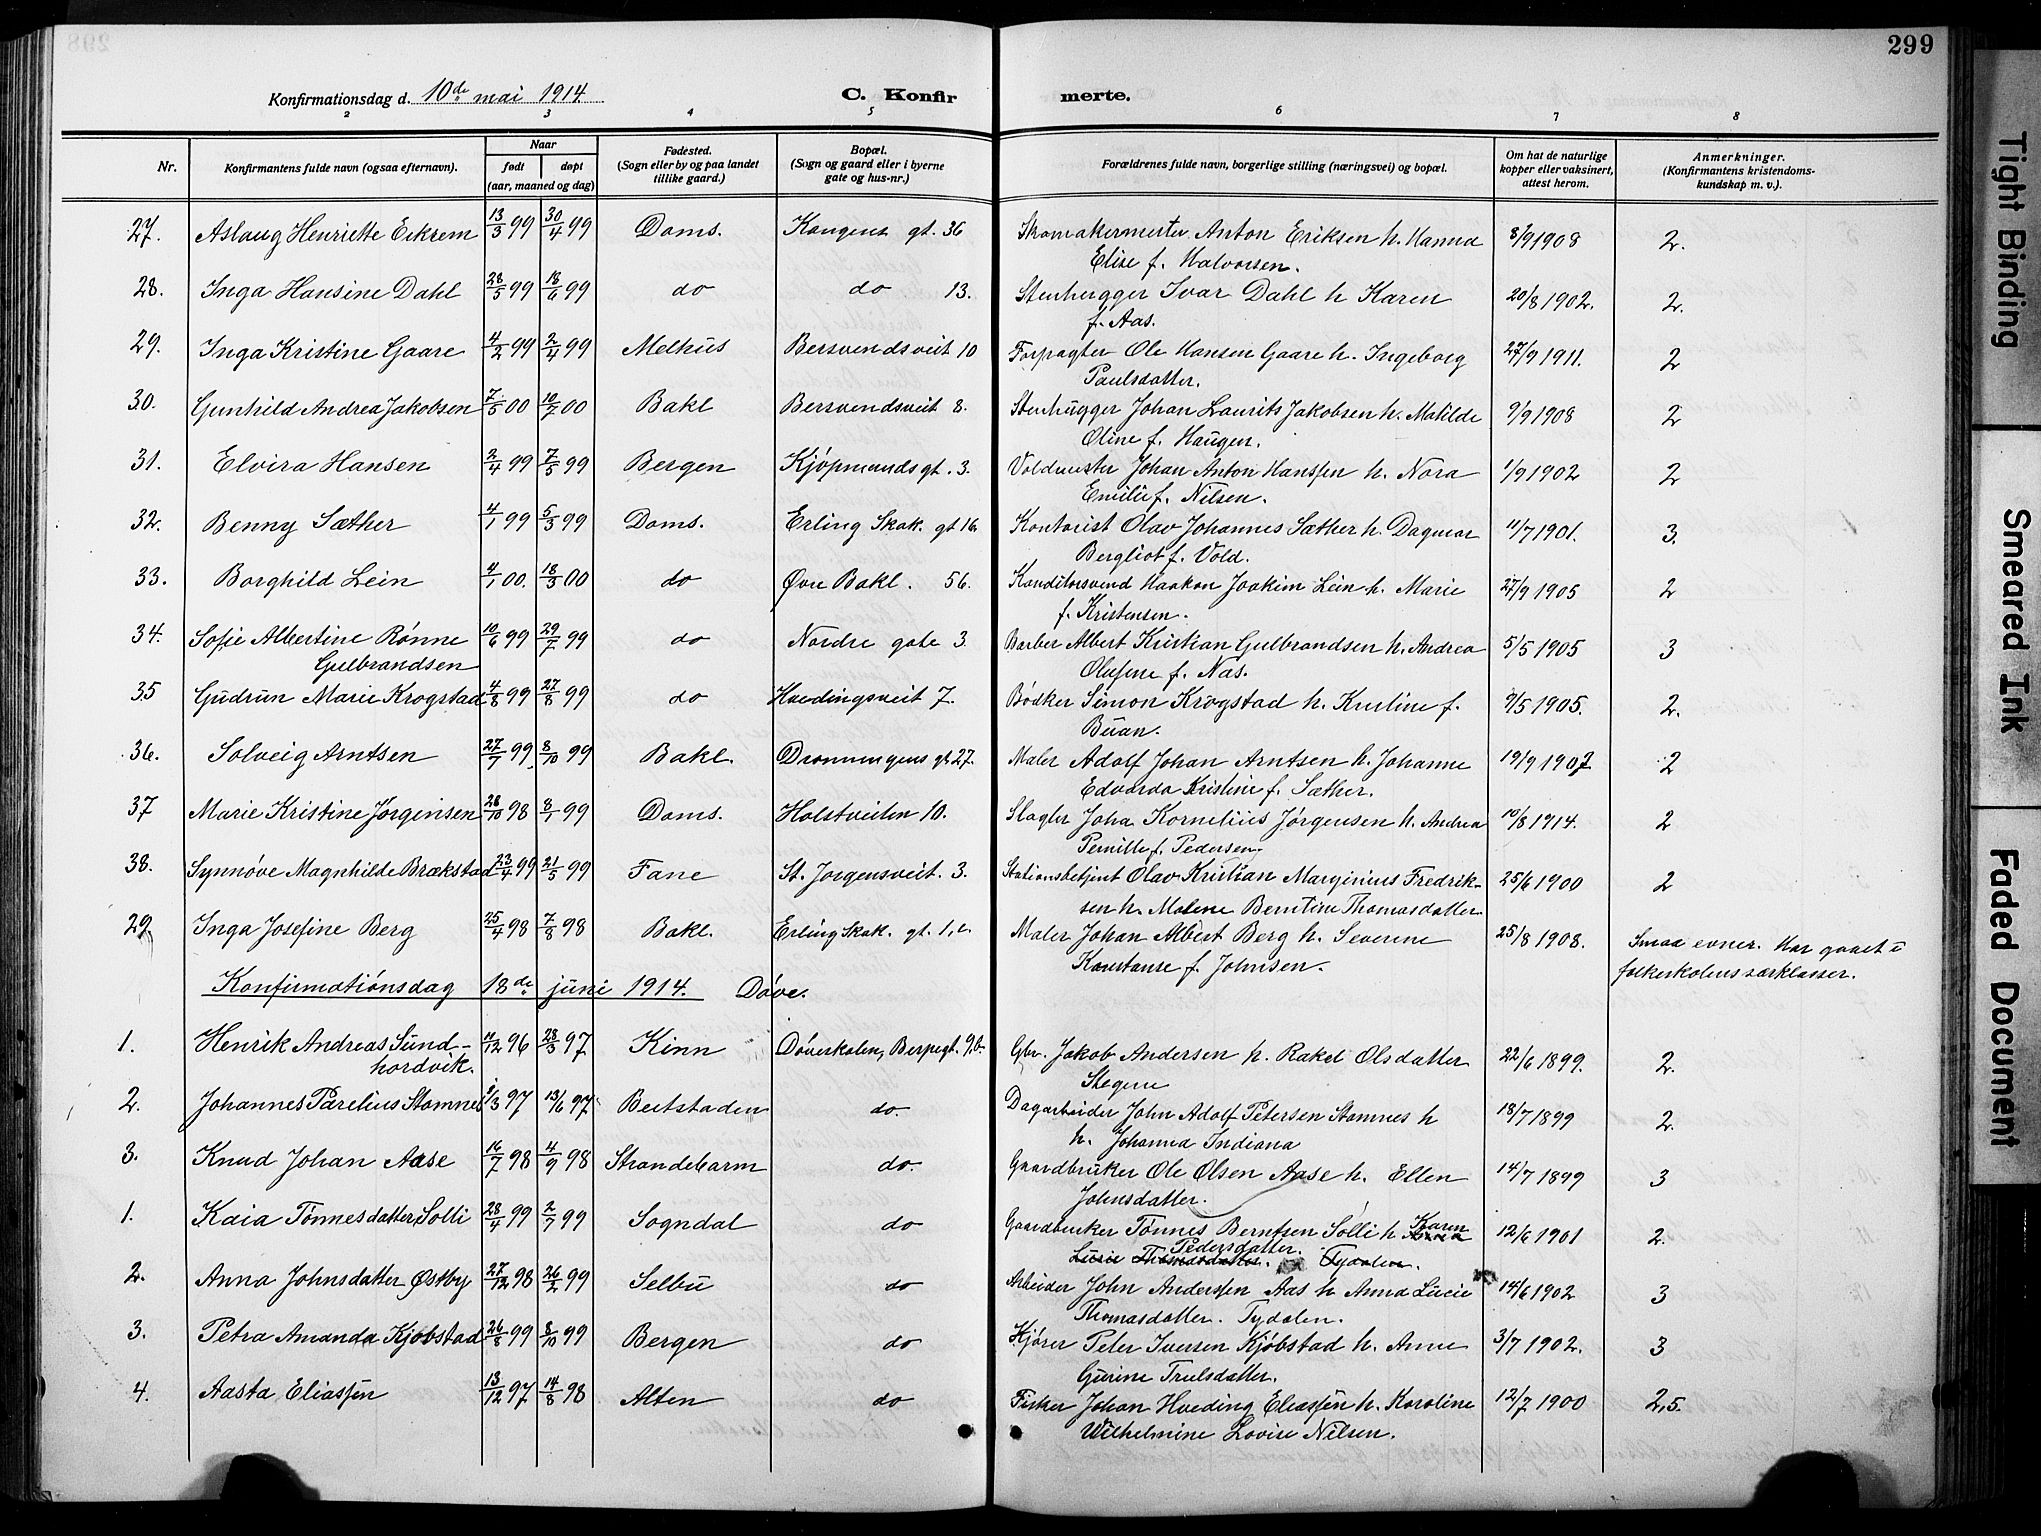 299
Konfirmationsdag d. 10de mai 1914
C. Konfir merte.
2 3 4 5 6 7 8
Nr. Konfirmantens fulde navn (ogsaa efternavn). Naar født døpt (aar, maaned og dag) Fødested. (Sogn eller by og paa landet tillike gaard.) Bopæl. (Sogn og gaard eller i byerne gate og hus-nr.) Forældrenes fulde navn, borgerlige stilling (næringsvei) og bopæl. Om hat de naturlige kopper eller vaksinert, attest herom. Anmerkninger. (Konfirmantens kristendomskundskap m. v.).
27. Aslaug Henriette Eikrem 13/3 99 30/4 99 Doms. Kongens gt. 36 Skomakermester Anton Eriksen h. Hanna 8/9 1908 2.
Elise f. Halvorsen.
28. Inga Hansine Dahl 28/5 99 18/6 99 do do 13. Stenhugger Ivar Dahl h Karen 20/8 1902. 2.
f. Aas.
29. Inga Kristine Gaare 4/2 99 2/4 99 Melhus Bersvendsveit 10 Forpagter Ole Hansen Gaare h. Ingeborg 27/9 1911. 2
Paulsdatter.
30. Gunhild Andrea Jakobsen 7/5 00 10/7 00 Bakl Bersvendsveit 8. Stenhugger Johan Laurits Jakobsen h. Matilde 9/9 1908 2
Oline f. Haugen.
31. Elvira Hansen 2/4 99 7/5 99 Bergen Kjøpmandsgt. 3. Voldmester Johan Anton Hanssen h. Nora 1/9 1902 2
Emilie f. Nilsen.
32. Benny Sæther 4/1 99 5/3 99 Doms. Erling Skak. gt 16. Kontorist Olav Johannes Sæther h. Dagmar 11/7 1901. 3.
Bergliot f. Vold.
33. Borghild Lein 4/1 00. 18/3 00 do Øvre Bakl. 56. Konditorsvend Haakon Joakim Lein h. Marie 27/9 1905 2
f. Kristensen.
34. Sofie Albertine Rønne 10/6 99 29/7 99 do Nordre gate 3. Barber Albert Kristian Gulbrandsen h. Andrea 5/5 1905 3
Gulbrandsen Olufine f. Nas.
35 Gudrun Marie Krogstad 4/8 99 27/8 99 do Hvedingsveit 7. Bødker Simon Krogstad h. Kristine f. 9/5 1905. 2.
Buan.
36. Solveig Arntsen 27/7 99. 8/10 99 Bakl. Dronningens gt 27. Maler Adolf Johan Arntsen h. Johanne 19/9 1907 2
Edvarda Kristine f. Sæther.
37 Marie Kristine Jørgensen 28/10 98 8/1 99 Doms. Holstveiten 10. Slagter Joha Kornelius Jørgensen h. Andrea 10/8 1914. 2
Pernille f. Pedersen.
38. Synnøve Magnhilde Brækstad 23/4 99 21/5 99 Fane St. Jorgensveit. 3. Stationsbetjent Olav Kristian Marginius Fredrik- 25/6 1900 2
sen h. Malene Berntine Thomasdatter.
29. Inga Josefine Berg 25/4 98 7/8 98 Bakl. Erling Skak. gt. 1, c. Maler Johan Albert Berg h. Severine 25/8 1908. Smaa evner. Har gaaet i
Konstanse f. Johnsen. folkeskolens særklasser.
Konfirmationsdag 18de juni 1914. Døve.
1. Henrik Andreas Sund- 11/12 96 28/3 97 Kinn Døveskolen, Bispegt. 9,b. Gbr. Jakob Andersen h. Rakel Olsdatter 22/6 1899. 2.
hordvik. Stegene
2. Johannes Parelius Stamnes 8/3 97 13/6 97 Beitstaden do. Dagarbeider John Adolf Petersen Stamnes h 18/7 1899 2.
h. Johanna Indiana
3. Knud Johan Aase 16/7 98 4/9 98 Strandebarm do. Gaardbruker Ole Olsen Aase h. Ellen 14/7 1899 3
Johnsdatter.
1. Kaia Tønnesdatter Solli 28/4 99 2/7 99 Sogndal do Gaardbruker Tønnes Berntsen Solli h Karen Anna 12/6 1901 2.
Pedersdatter.
Lucie Thomasdatter. Tydalen.
2. Anna Johnsdatter Østby 27/12 98 26/2 99 Selbu do Arbeider John Anderssen Aas h Anna Lucie 14/6 1902 3
Thomasdatter. Tydalen.
3. Petra Amanda Kjøbstad 26/8 99 8/10 99 Bergen do Kjører Peter Iversen Kjøbstad h. Anne 3/7 1902. 3
Gurine Trulsdatter.
4. Aasta Eliassen 13/12 97 14/8 98 Alten do Fisker Johan Hveding Eliassen h. Karoline 12/7 1900 2,5.
Wilhelmine Lovise Nilsen.
Tight Binding
Smeared Ink
Faded Document